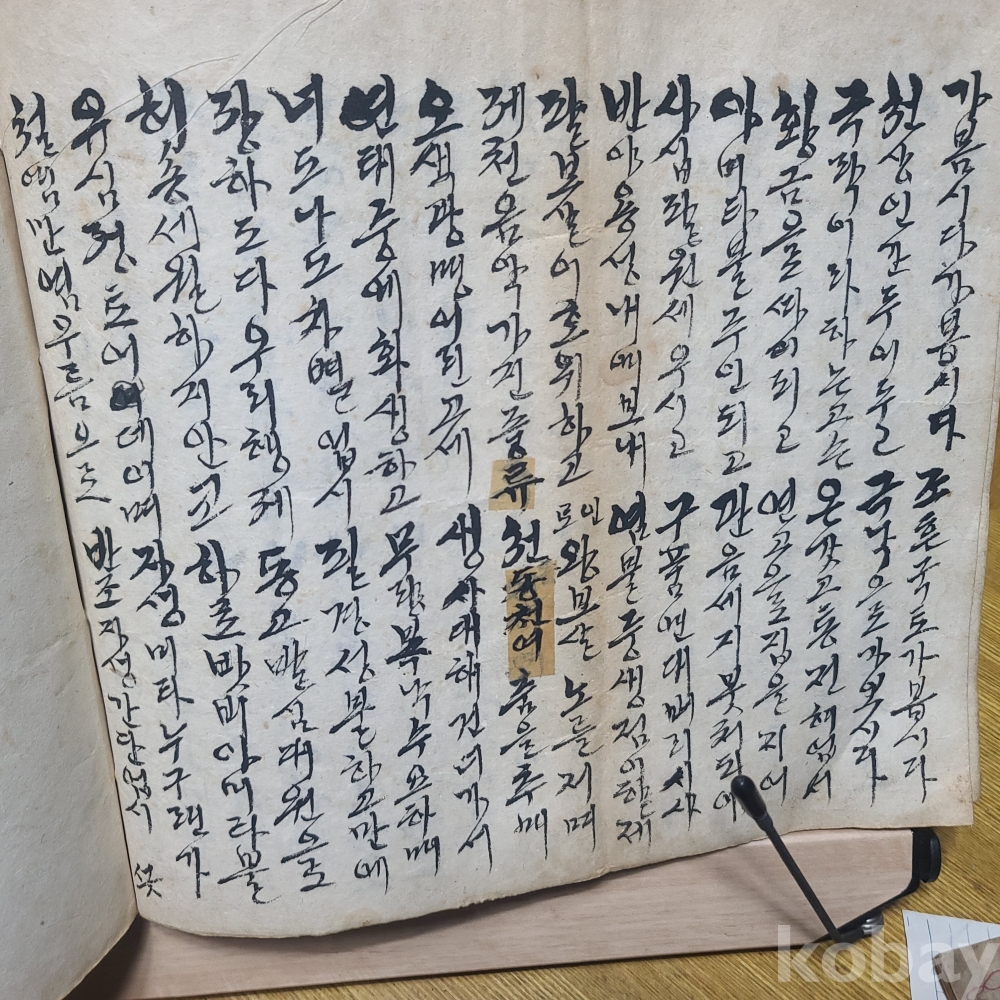 가봅시다가봅시다 조흔국토가봅시다
천상인간두어두고 극낙으로가봅시다
극락이라하는고슨 온갓고통전혜업서
황금을로따이되고 연곳으로집을지어
아미타불주인되고 관음세지봇처되여
사십팔원세우시고 구품연대버리시사
반야용성내여보내 염불중생접인할제
팔보살이호위하고 인로왕보살노를저며
제천음악가진풍류 천동천여춤을추며
오색광명어린고세 생사대해건너가서
연태중에화생하고 무량복낙수요하며
너도나도차별업시 필경성불하고만에
장하도다우리형제 동고발심대원으로
허송세월하지안고 하로바비아미타불
유심정토어데이며 자성미타누구랜가
념만염무름으로 반조자성간단업시 끗
kobay